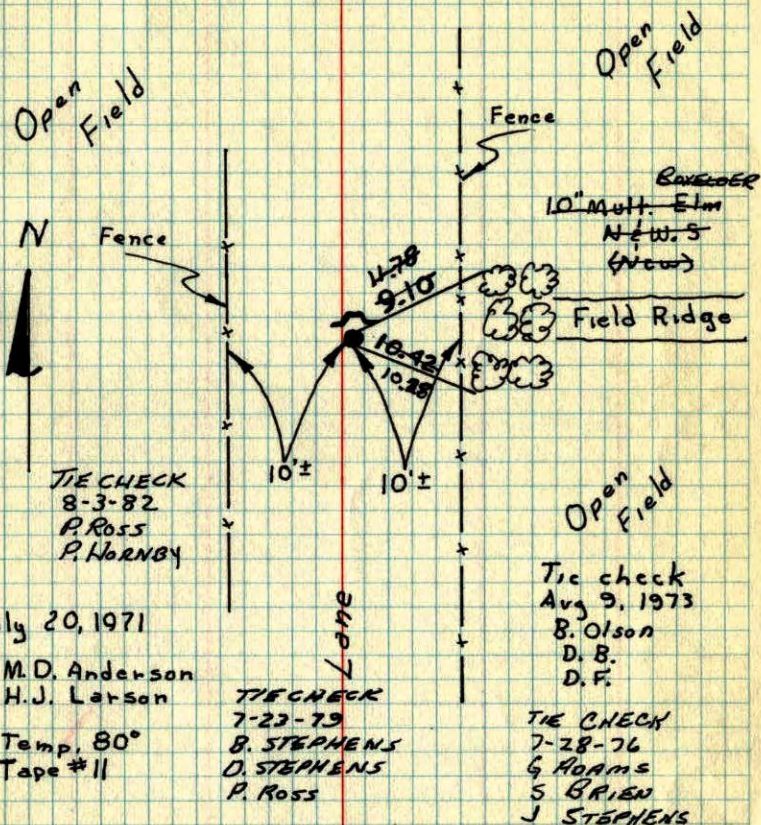 Open
Field
Open
Field
Fence
Boxelder
10" Mult. Elm
N & W. S
(New)
N
Fence
11.78
9.10
Field Ridge
10.42
10.28
10'±
10'±
TIE CHECK
8-3-82
P. ROSS
P. HORNBY
Open
Field
Tie check
Aug 9, 1973
B. Olson
D. B.
D. F.
ly 20, 1971
M. D. Anderson
H. J. Larson
Temp. 80°
Tape #11
Lane
TIE CHECK
7-23-79
B. STEPHENS
D. STEPHENS
P. ROSS
TIE CHECK
7-28-76
G ADAMS
S BRIEN
J STEPHENS